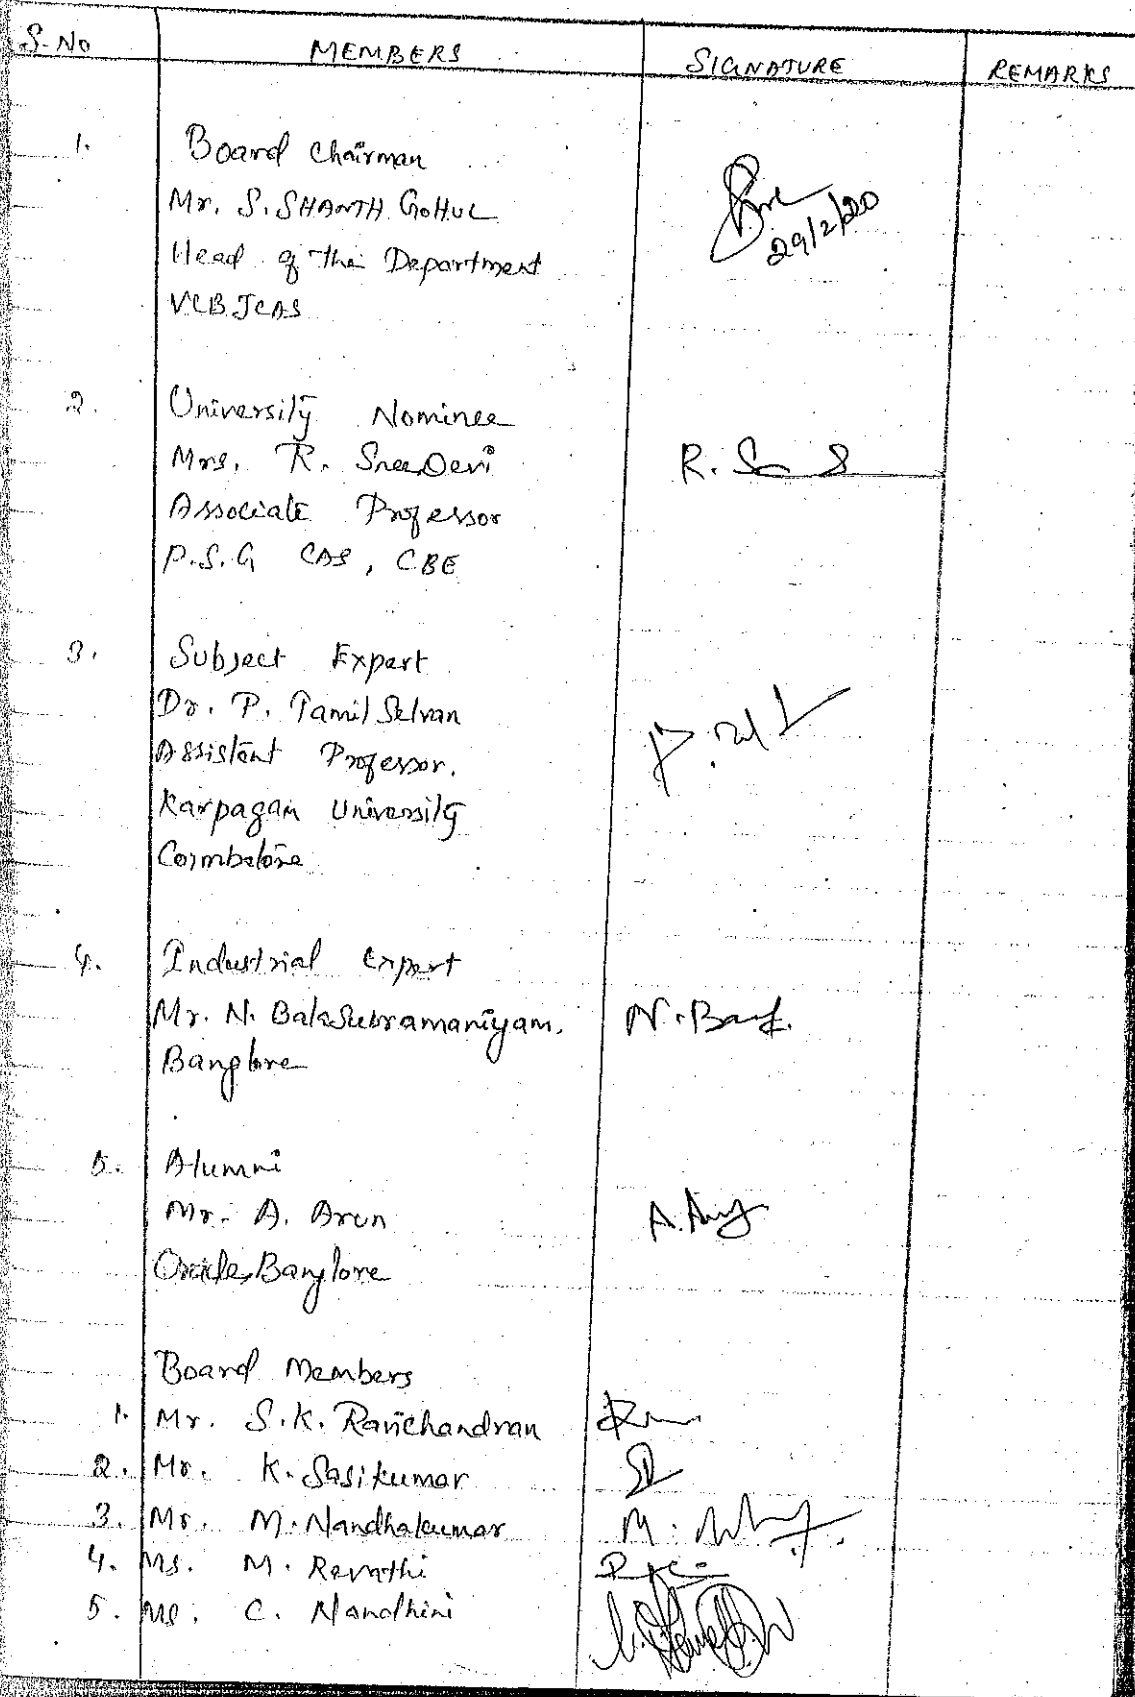 S.No MEMBERS SIGNATURE REMARKS
1. Board Chairman
Mr. S. SHANTH GOHUL
Head of the Department
29/2/20
2. University Nominee
Mrs. R. SreeDevi R. S
Associate Professor
P.S.G CAS, CBE
3. Subject Expert
Dr. P. Tamil Selvan
Assistant Professor.
Karpagam University
Coimbatore
4. Industrial Expert
Mr. N. Balasubramaniyam. N.
Banglore
5. Alumni
Mr. A. Arun A.
Banglore
Board Members
1. Mr. S.K. Ravichandran
2. Mr. K. Sasikumar
3. Mr. M. Nandhakumar M.
4. Ms. M. Revathi
5. Ms. C. Nandhini